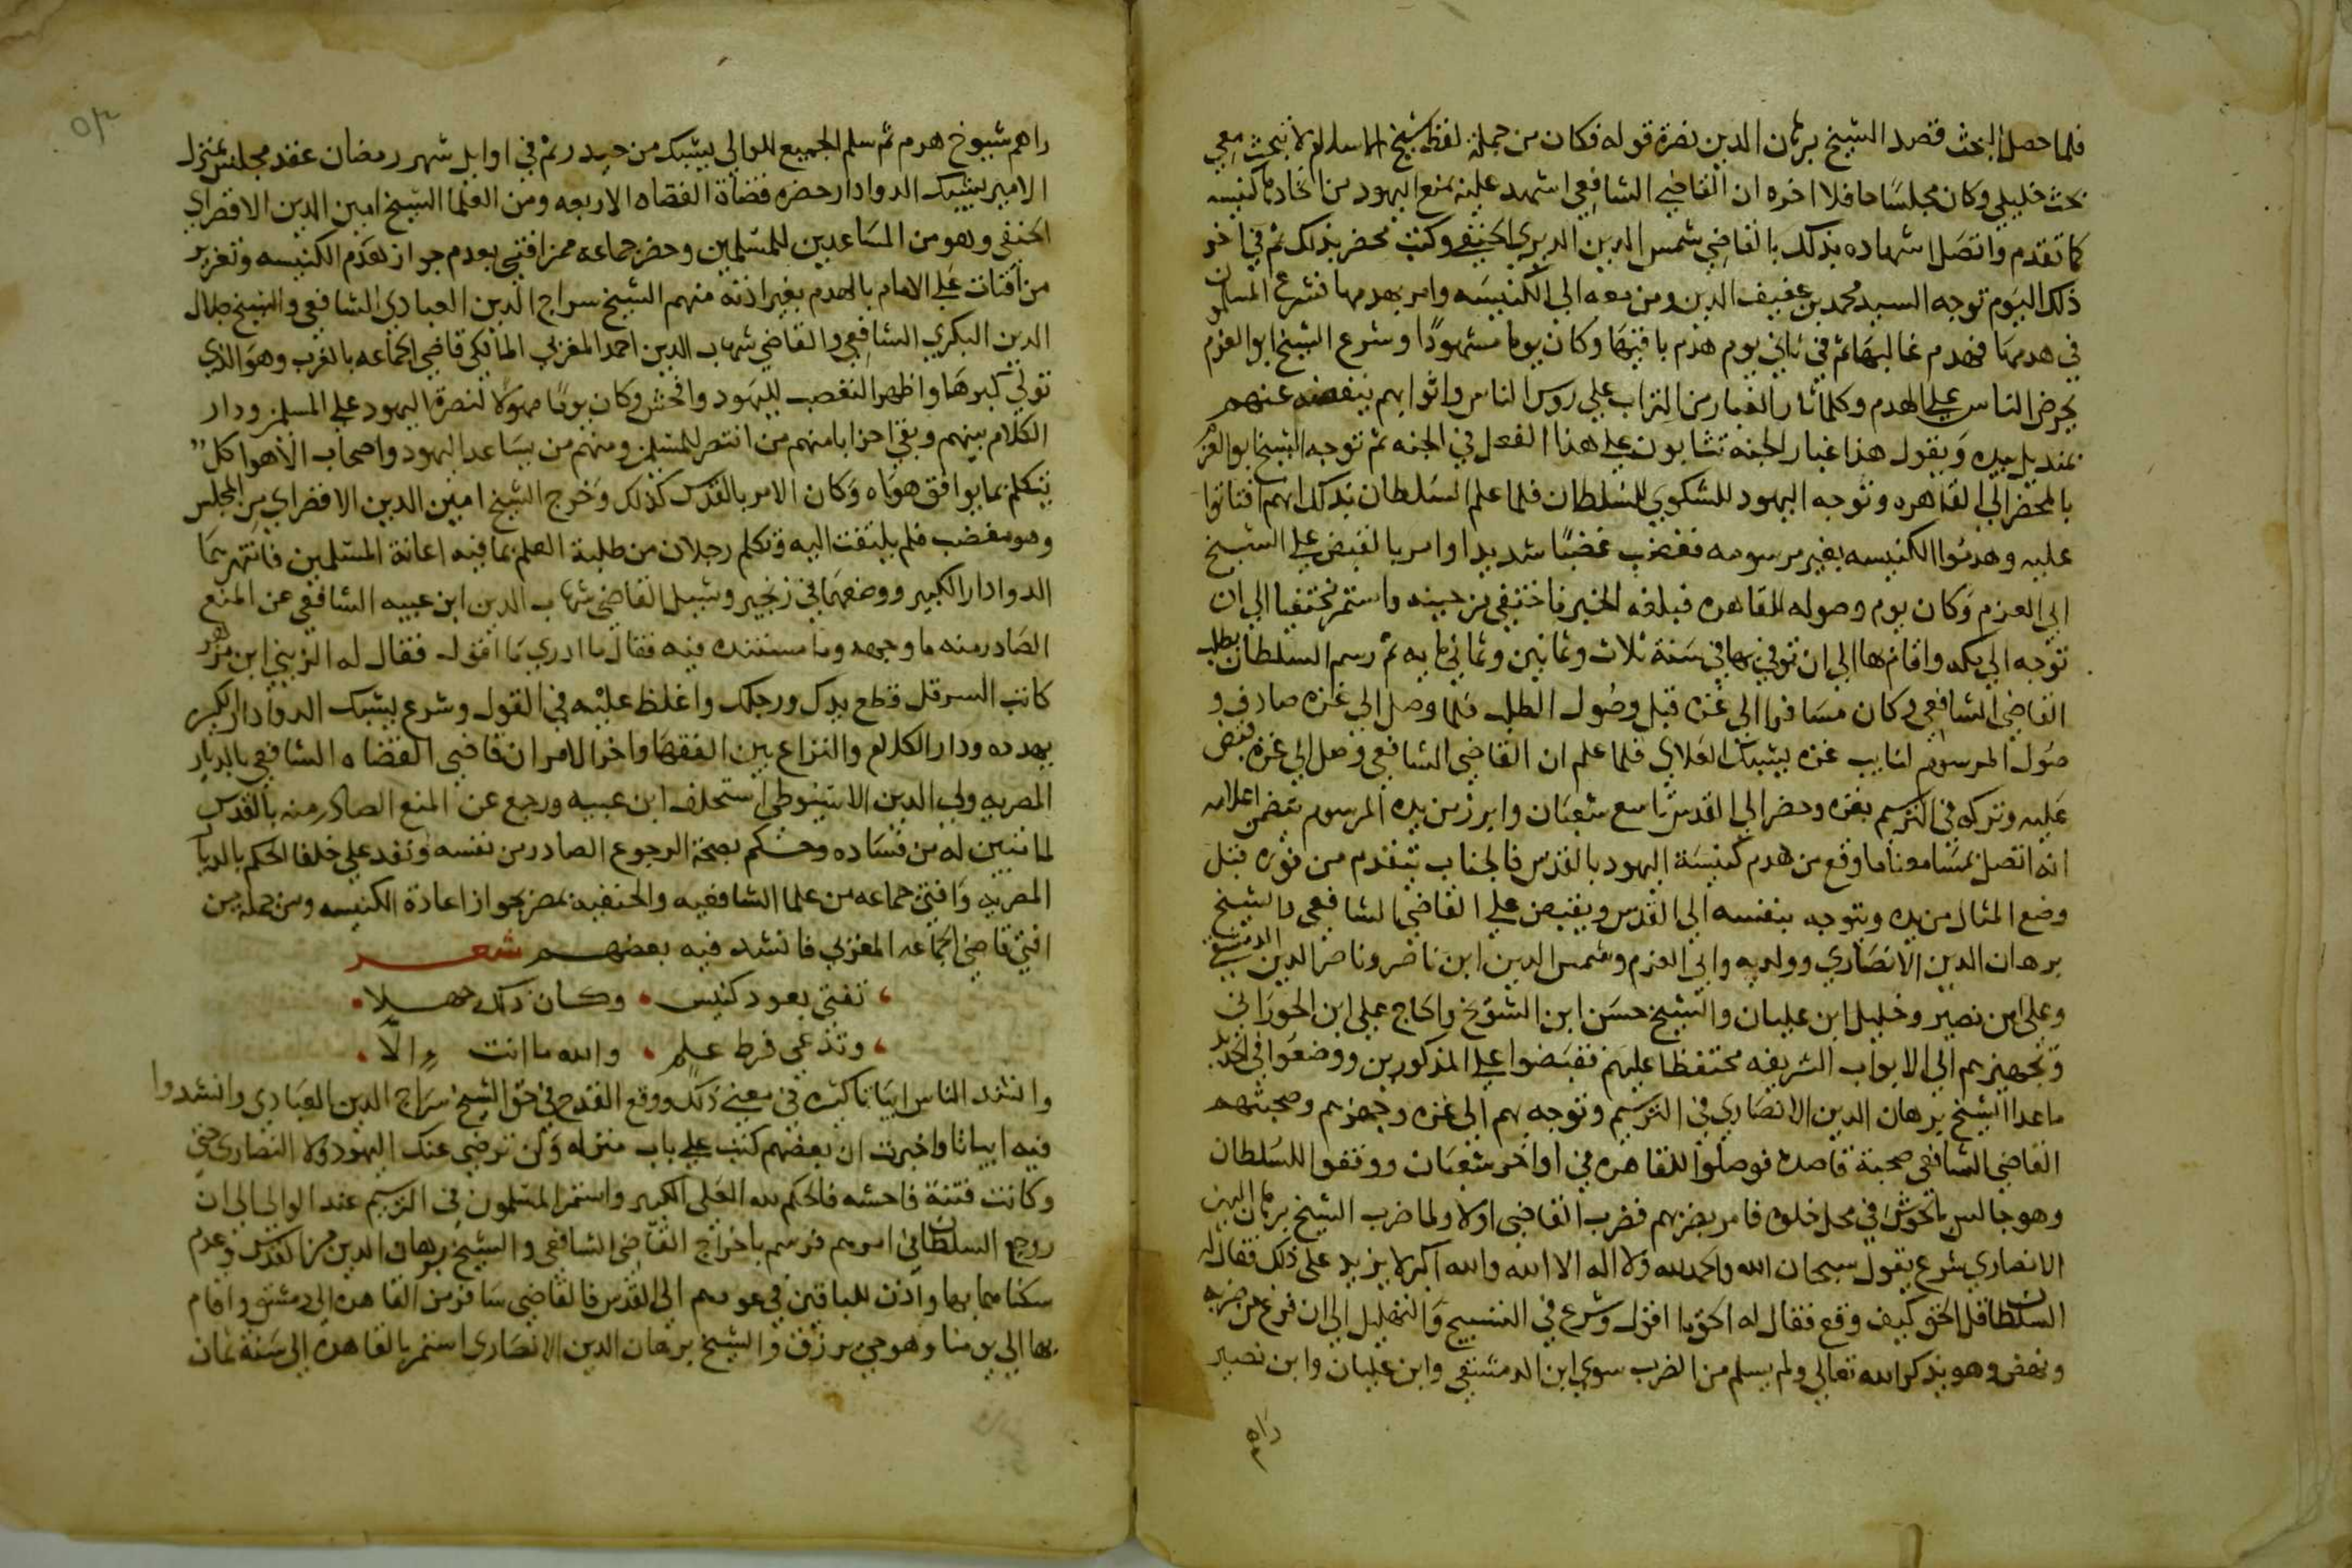 فلما حصل البحث قصد الشيخ برهان الدين نصرة قوله فكان من جملة لفظ شيخ الاسلام لا تبحث معي
بحث خليلي وكان مجلسا حافلا اخره ان القاضي الشافعي اشهد عليه بمنع اليهود من اتخاذها كنيسه
كما تقدم واتصل اشهاده بذلك بالقاضي شمس الدين الديري الحنفي وكتب محضر بذلك ثم في اخر
ذلك اليوم توجه السيد محمد بن عفيف الدين ومن معه الي الكنيسه وامر بهدمها فشرع المسلمون
في هدمها فهدم غالبها ثم في ثاني يوم هدم باقيها وكان يوما مشهودًا وشرع الشيخ ابو العزم
يحرض الناس علي الهدم وكلما ثار الغبار من التراب علي روس الناس واثوابهم ينفضه عنهم
بمنديل بيده ويقول هذا غبار الجنه تثابون علي هذا الفعل في الجنه ثم توجه الشيخ ابو العزم
بالمحضر الي القاهره وتوجه اليهود للشكوي للسلطان فلما علم السلطان بذلك انهم افتاتوا
عليه وهدموا الكنيسه بغير مرسومه فغضب غضبًا شديدا وامر بالقبض علي الشيخ
ابي العزم وكان يوم وصوله للقاهره فبلغه الخبر فاختفي من حينه واستمر مختفيا الي ان
توجه الي مكه واقام بها الي ان توفي بها في سنة ثلاث وثمانين وثماني مايه ثم رسم السلطان بطلب
القاضي الشافعي وكان مسافرا الي غزه قبل وصول الطلب فلما وصل الي غزه صادف و
صول المرسوم لنايب غزه يشبك العلاي فلما علم ان القاضي الشافعي وصل الي غزه قبض
عليه وتركه في الترسيم بغزه وحضر الي القدس تاسع شعبان وابرز من يده المرسوم يتضمن اعلامه
انه اتصل بمسامعنا ما وقع من هدم كنيسة اليهود بالقدس فالجناب يتقدم من فوره قبل
وضع المثال من يده ويتوجه بنفسه الي القدس ويقبض علي القاضي الشافعي والشيخ
برهان الدين الانصاري وولديه وابي العزم وشمس الدين ابن ناصر وناصر الدين الدمشقي
وعلي ابن نصير وخليل ابن عليان والشيخ حسن ابن الشويخ والحاج علي ابن الحوراني
وتجهيزهم الي الابواب الشريفه محتفظا عليهم فقبضوا علي المذكورين ووضعوا في الحديد
ماعدا الشيخ برهان الدين الانصاري في الترسيم وتوجه بهم الي غزه وجهزهم وصحبتهم
القاضي الشافعي صحبة قاصده فوصلوا للقاهره في اواخر شعبان ووقفوا للسلطان
وهو جالس بالحوش في محل خلوه فامر بضربهم فضرب القاضي اولا ولما ضرب الشيخ برهان الدين
الانصاري شرع يقول سبحان الله والحمد لله ولا اله الا الله والله اكبر لا يزيد علي ذلك فقال له
السلطان قل الحق كيف وقع فقال له الحق ما اقول وشرع في التسبيح والتهليل الي ان فرغ من ضربه
ونهض وهو يذكر الله تعالي ولم يسلم من الضرب سوي ابن الدمشقي وابن عليان وابن نصير
راهم
راهم شيوخ هرم ثم سلم الجميع للوالي يشبك من حيدر ثم في اوايل شهر رمضان عقد مجلس بمنزل
الامير يشبك الدوادار حضره قضاة القضاه الاربعه ومن العلما الشيخ امين الدين الاقصراي
الحنفي وهو من المساعدين للمسلمين وحضر جماعه ممن افتي بعدم جواز هدم الكنيسه وتعزير
من افتات علي الامام بالهدم بغير اذنه منهم الشيخ سراج الدين العبادي الشافعي والشيخ جلال
الدين البكري الشافعي والقاضي شهاب الدين احمد المغربي المالكي قاضي الجماعه بالغرب وهو الذي
تولي كبرها واظهر التعصب لليهود وافحش وكان يومًا مهولا لنصرة اليهود علي المسلمين ودار
الكلام بينهم وبقي احزابا منهم من انتصر للمسلمين ومنهم من يساعد اليهود واصحاب الاهوا كل
يتكلم بما يوافق هواه وكان الامر بالقدس كذلك وخرج الشيخ امين الدين الاقصراي من المجلس
وهو مغضب فلم يلتفت اليه وتكلم رجلان من طلبة العلم بما فيه اعانة المسلمين فانتهرهما
الدوادار الكبير ووضعهما في زنجير وسيل القاضي شهاب الدين ابن عبيه الشافعي عن المنع
الصادر منه ما وجهه وما مستنده فيه فقال ما ادري ما اقول فقال له الزيني ابن مزهر
كاتب السر قل قطع يدك ورجلك واغلظ عليه في القول وشرع يشبك الدوادار الكبير
يهدده ودار الكلام والنزاع بين الفقها واخر الامر ان قاضي القضاه الشافعي بالديار
المصريه ولي الدين الاسيوطي استحلف ابن عبيه ورجع عن المنع الصادر منه بالقدس
لما تبين له من فساده وحكم بصحة الرجوع الصادر من نفسه ونفد علي خلفا الحكم بالديار
المصريه وافتي جماعه من علما الشافعيه والحنفيه بمصر بجواز اعادة الكنيسه ومن جملة من
افتي قاضي الجماعه المغربي فانشد فيه بعضهم شعر
تفتي بعود كنيس وكان ذلك جهلا
وتدعي فرط علم والله ما انت الا
وانشد الناس ابياتا كثيره في معني ذلك ووقع القدح في حق الشيخ سراج الدين العبادي وانشدوا
فيه ابياتا واخبرت ان بعضهم كتب علي باب منزله ولن ترضي عنك اليهود ولا النصاري حتي
وكانت فتنة فاحشه فالحكم لله العلي الكبير واستمر المسلمون في الترسيم عند الوالي الي ان
روجع السلطان في امرهم فرسم باخراج القاضي الشافعي والشيخ برهان الدين من القدس وعدم
سكناهما بها واذن للباقين في عودهم الي القدس فالقاضي سافر من القاهره الي دمشق واقام
بها الي يومنا وهو حي يرزق والشيخ برهان الدين الانصاري استمر بالقاهره الي سنة ثمان